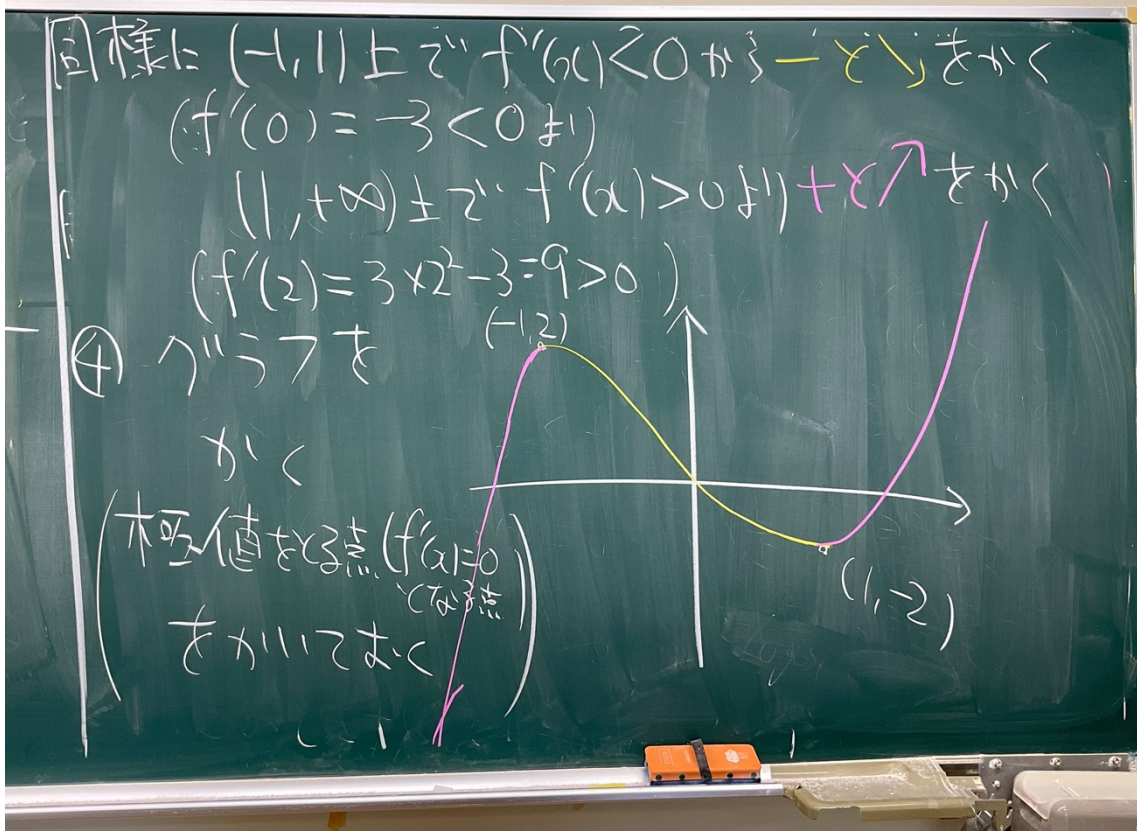 同様に (-1,1)上で f'(x)<0から ーと↘をかく
(f'(0)=-3<0より
(1,+∞)上で f'(x)>0より +と↗をかく
(f'(2)=3×2²-3=9>0)
④ グラフを
かく
(極値をとる点(f'(x)=0
となる点)
をかいておく)
(-1,2)
(1,-2)